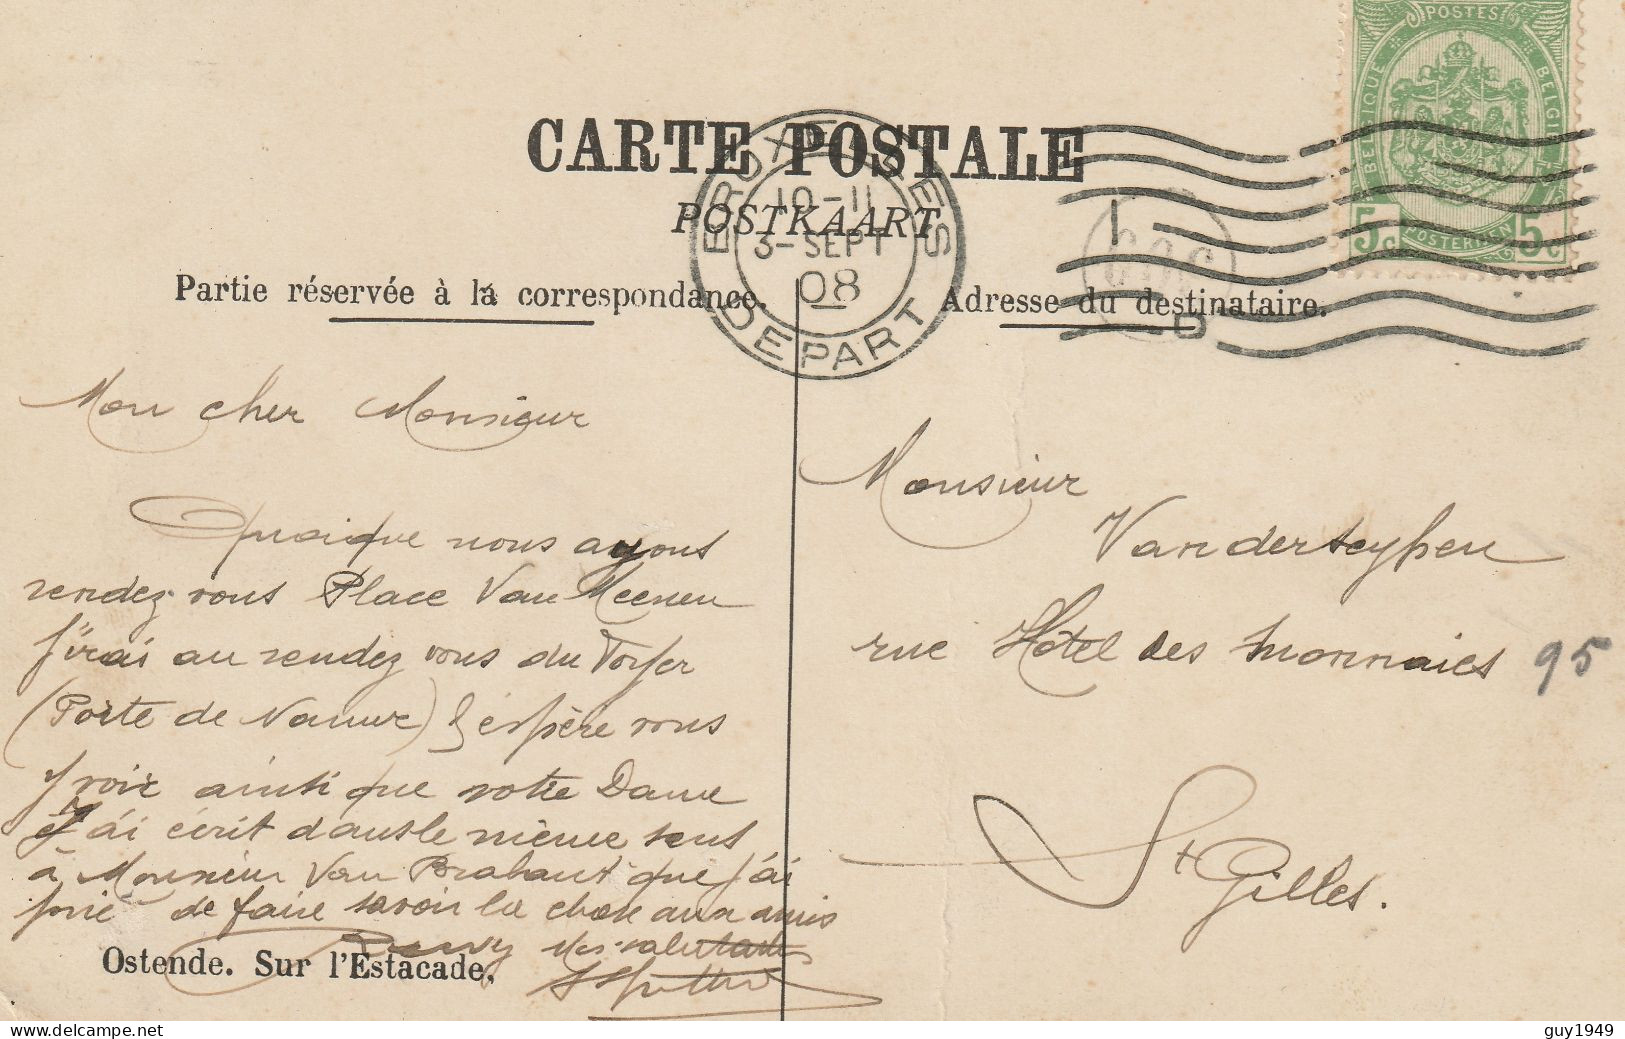 POSTES
BELGIQUE
BELGIE
5c POSTERIJEN 5c
CARTE POSTALE
POSTKAART
BRUXELLES
10-11
3-SEPT
08
DEPART
Partie réservée à la correspondance.
Adresse du destinataire.
Mon cher Monsieur
Quoique nous ayons
rendez vous Place Van Meenen
j'irai au rendez vous du
(Porte de Namur) j'espère vous
y voir ainsi que votre Dame
J'ai écrit dans le même sens
à Monsieur Van Brabant que j'ai
prié de faire savoir la chose aux amis
Mes salutations
Ostende. Sur l'Estacade.
Monsieur
Vanderseypen
rue Hôtel des monnaies 95
St Gilles.
guy1949